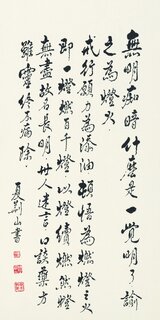 無明痴時什麼是一覺明了諭
之為燈火
戒行願力為添油頓悟為燈之火
即一燈燃百千燈以燈續燃燈
無盡故名長明世人迷言口談藥方
雖靈終不病除
夏荊山書